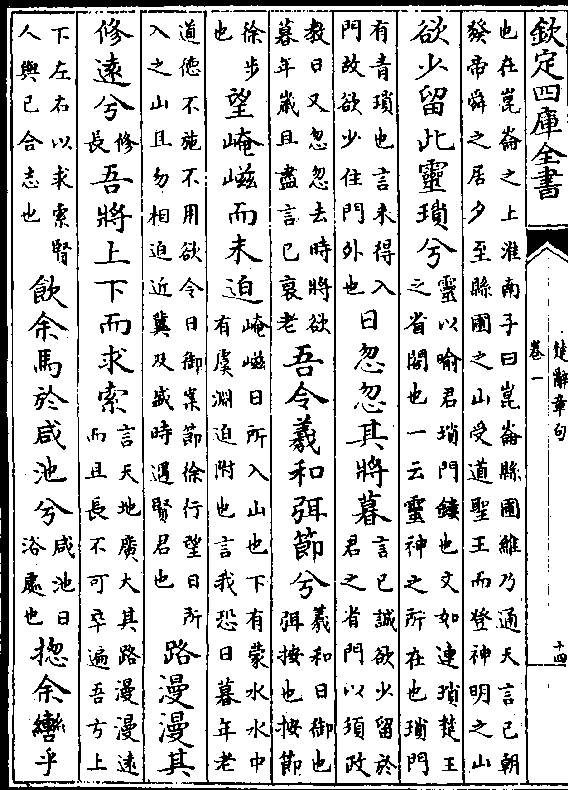 欽定四庫全書
楚辭章句
卷一
十四
也在崑崙之上淮南子曰崑崙縣圃維乃通天言已朝
發帝舜之居夕至縣圃之山受道聖王而登神明之山
欲少留此靈瑣兮
靈以喻君瑣門鏤也文如連瑣楚王
之省閣也一云靈神之所在也瑣門
有青瑣也言未得入
門故欲少住門外也
日忽忽其將暮
言已誠欲少留於
君之省門以須政
教日又忽忽去時將欲
暮年歲且盡言已衰老
吾令羲和弭節兮
羲和日御也
弭按也按節
徐步
也
望崦嵫而未迫
崦嵫日所入山也下有蒙水水中
有虞淵迫附也言我恐日暮年老
道德不施不用欲令日御案節徐行望日所
入之山且勿相迫近冀及盛時遇賢君也
路漫漫其
修遠兮
修
長
吾將上下而求索
言天地廣大其路漫漫遠
而且長不可卒遍吾方上
下左右以求索賢
人與已合志也
飲余馬於咸池兮
咸池日
浴處也
揔余轡乎